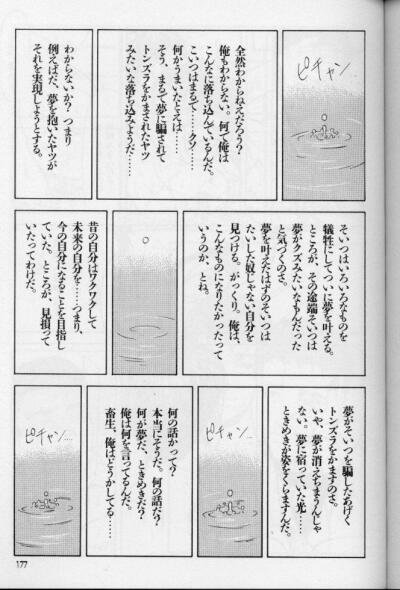 ピチャン…
全然わからねえだろう？
俺もわからない。何で俺は
こんなに落ち込んでいるんだ。
こいつはまるで……クソ、
何かうまいたとえは……
そう、まるで夢に騙されて
トンズラをかまされたヤツ
みたいな落ち込みようだ……
わからないか？つまり
例えばだ、夢を抱いたヤツが
それを実現しようとする。
そいつはいろいろなものを
犠牲にしてついに夢を叶える。
ところが、その途端そいつは
夢がクズみたいなもんだった
と気づくのさ。
夢を叶えたはずのそいつは
たいした奴じゃない自分を
見つける。がっくり。俺は、
こんなものになりたかったって
いうのか、とね。
昔の自分はワクワクして
未来の自分を……つまり、
今の自分になることを目指し
ていた。ところが、見損って
いたってわけだ。
夢がそいつを騙したあげく
トンズラをかますのさ。
いや、夢が消えちまうんじゃ
ない。夢に宿っていた光……
ときめきが姿をくらますんだ。
ピチャン…
何の話かって？
本当にそうだ。何の話だ？
何が夢だ、ときめきだ？
俺は何を言ってるんだ。
畜生、俺はどうかしてる……
ピチャン…
177